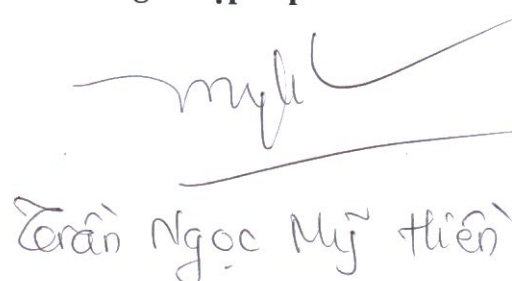 Trần Ngọc Mỹ Hiền